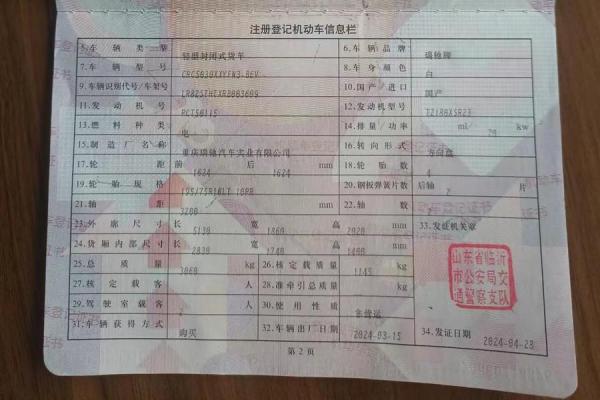 注册登记机动车信息栏
5.车辆类型 轻型封闭式货车 6.车辆品牌 瑞驰牌
7.车辆型号 CRC5030XXYEN3-BEV 8.车身颜色 白
9.车辆识别代号/车架号 10.国产/进口 国产
11.发动机号 12.发动机型号
13.燃料种类 电 14.排量/功率 ml/ kw
15.制造厂名称 重庆瑞驰汽车实业有限公司 16.转向形式 方向盘
17.轮距 前 1624 后 1624 mm 18.轮胎数 4
19.轮胎规格 195/75R16LT 10PR 20.钢板弹簧片数 后轴 片
21.轴距 mm 22.轴数
23.外廓尺寸 长 5130 宽 1860 高 2020 mm 33.发证机关章
24.货厢内部尺寸 长 宽 1740 高 mm
25.总质量 kg 26.核定载质量 1145 kg
27.核定载客 人 28.准牵引总质量 kg
29.驾驶室载客 人 30.使用性质
31.车辆获得方式 购买 32.车辆出厂日期 2024-03-15 34.发证日期 2024-04-28
山东省临沂
市公安局交
通警察支队
第2页